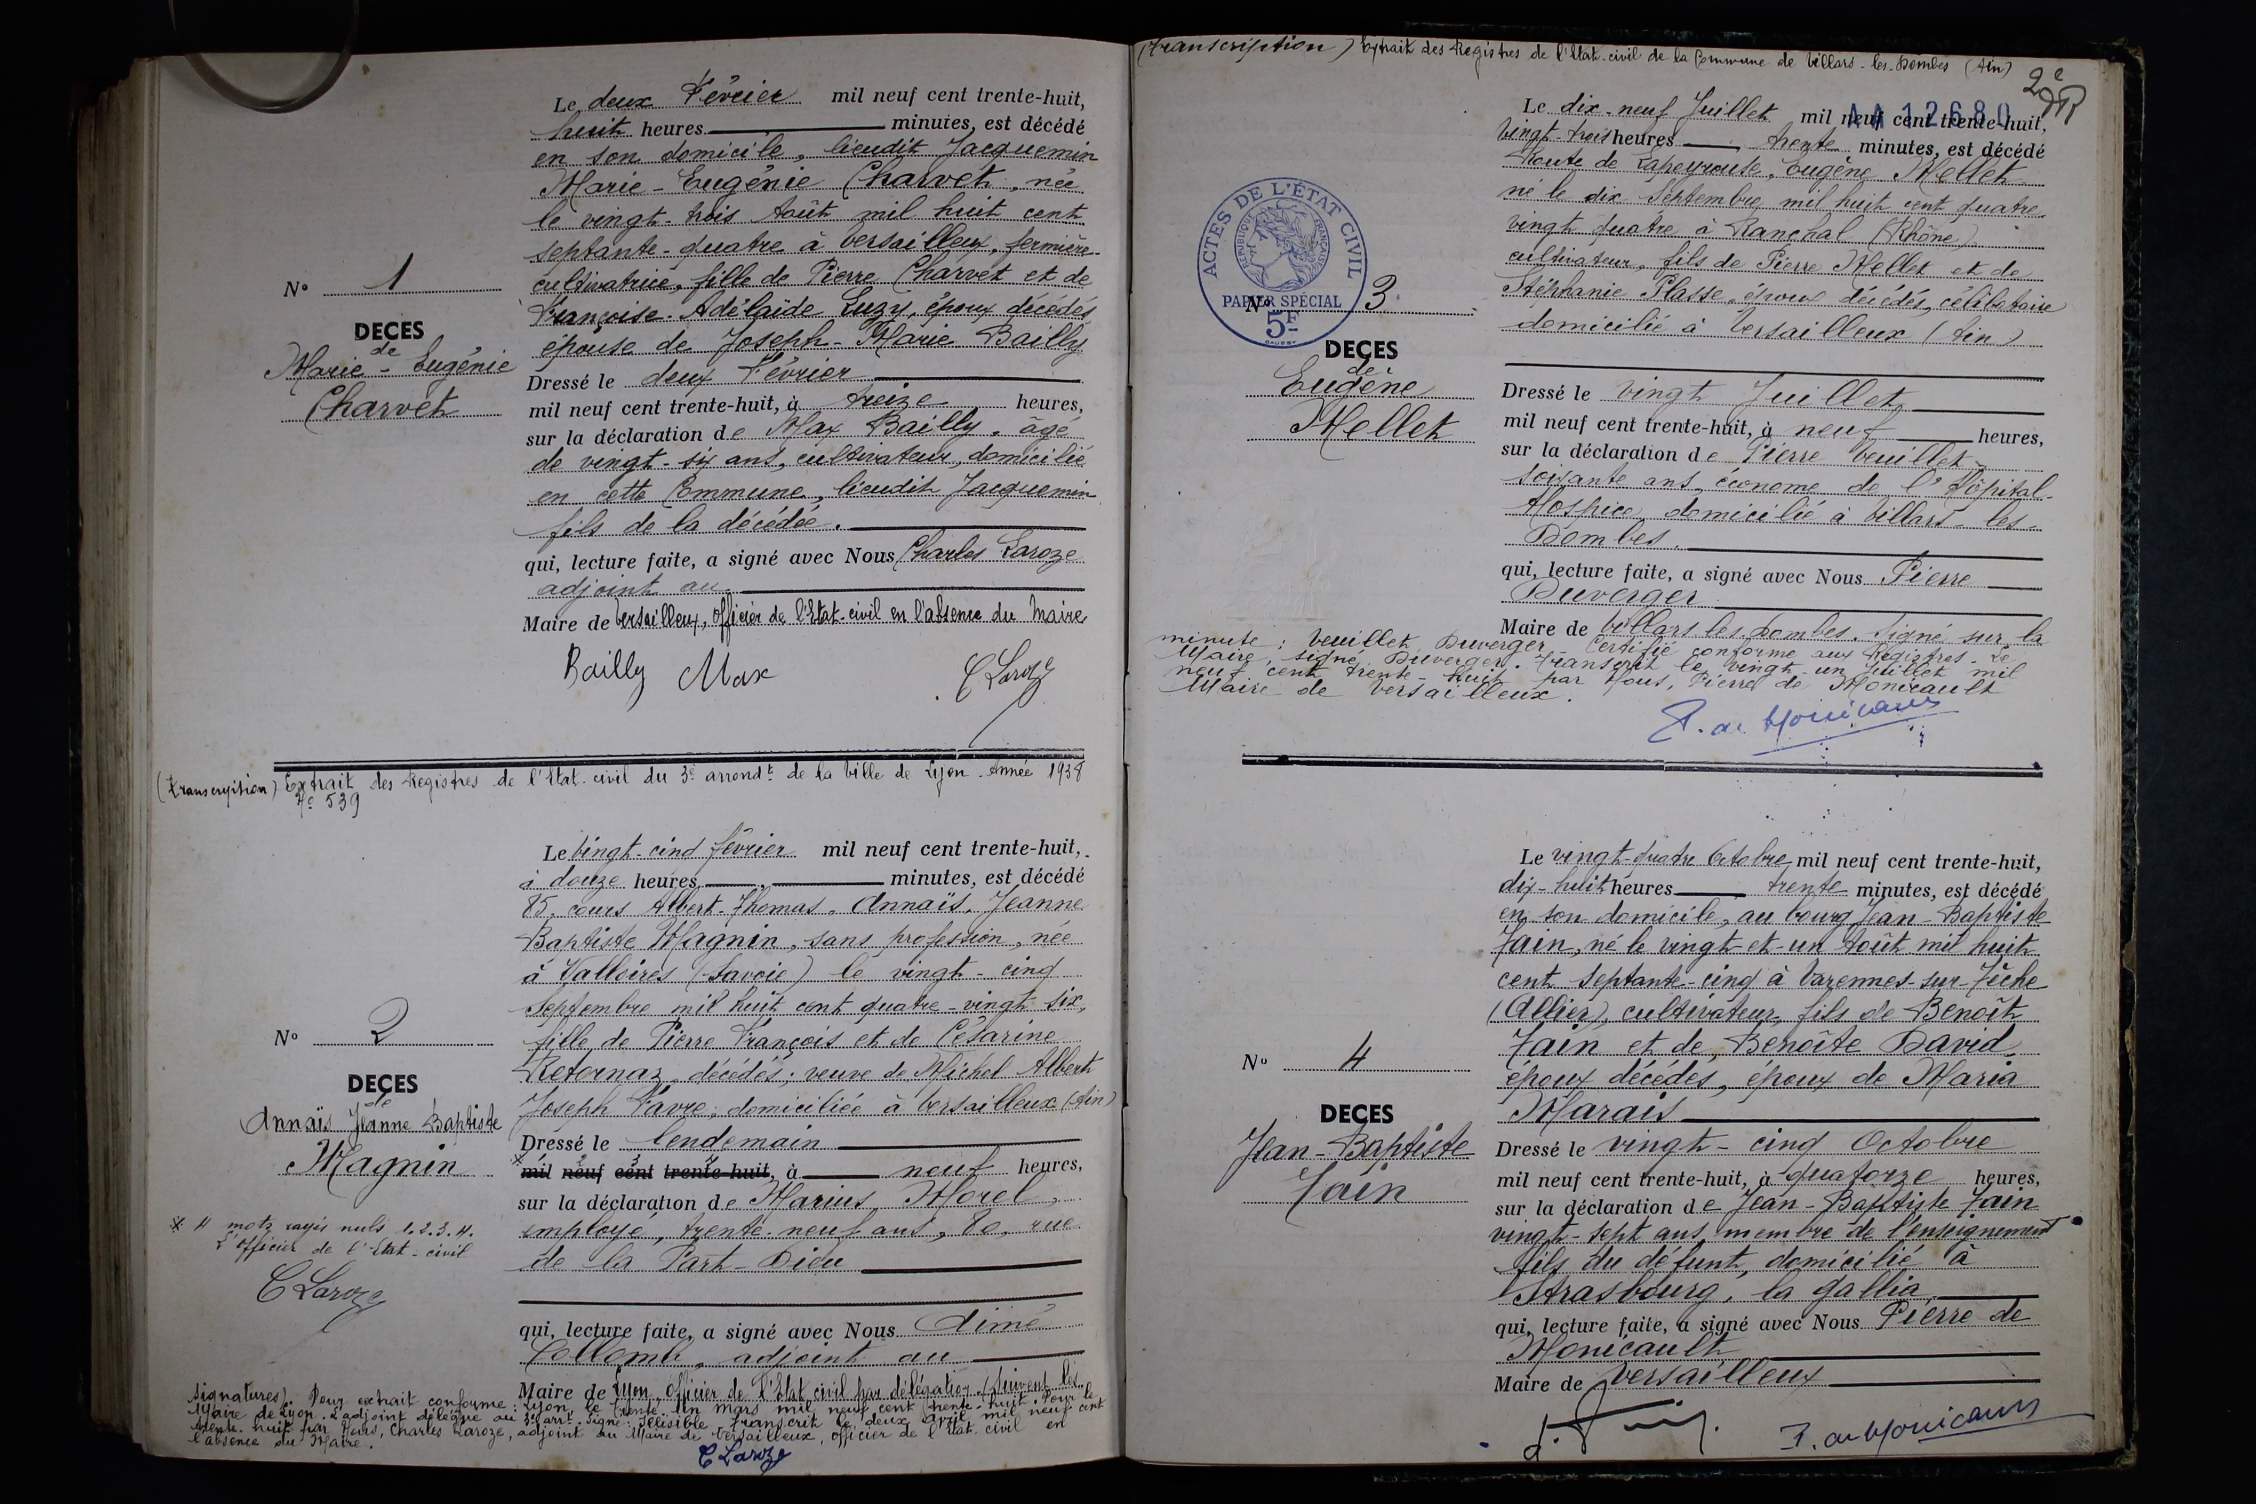 Le deux Février mil neuf cent trente-huit,
huit heures minutes, est décédé
en son domicile, lieudit Jacquemin
Marie-Eugénie Charvet, née
le vingt-trois Août mil huit cent
septante-quatre à Versailleux, fermière-
cultivatrice, fille de Pierre Charvet et de
Françoise-Adélaïde Luzy, époux décédés
épouse de Joseph-Marie Bailly
N° 1
DECES
de
Marie-Eugénie
Charvet
Dressé le deux Février
mil neuf cent trente-huit, à treize heures,
sur la déclaration de Max Bailly, âgé
de vingt-six ans, cultivateur, domicilié
en cette Commune, lieudit Jacquemin
fils de la décédée.
qui, lecture faite, a signé avec Nous Charles Laroze
adjoint au
Maire de Versailleux, officier de l'Etat-civil en l'absence du Maire
Bailly Max C Laroze
(transcription) Extrait des Registres de l'Etat-civil du 3e arrondt de la Ville de Lyon. Année 1938
N° 539
Le vingt-cinq février mil neuf cent trente-huit,
à douze heures minutes, est décédé
85, cours Albert-Thomas, Annaïs, Jeanne
Baptiste Magnin, sans profession, née
à Valloires (Savoie) le vingt-cinq
septembre mil huit cent quatre-vingt-six,
fille de Pierre François et de Césarine
Retornaz, décédés; veuve de Michel Albert
Joseph Favre; domiciliée à Versailleux (Ain)
N° 2
DECES
de
Annaïs Jeanne Baptiste
Magnin
Dressé le lendemain
x mil neuf cent trente-huit, à neuf heures,
sur la déclaration de Marius Morel,
employé, trente-neuf ans, 80, rue
de la Part-Dieu
x 4 mots rayés nuls 1.2.3.4.
L'officier de l'Etat-civil
C Laroze
qui, lecture faite, a signé avec Nous Aimé
Collomb, adjoint au
Maire de Lyon, officier de l'Etat civil par délégation. (Suivent les
signatures). Pour extrait conforme: Lyon, le trente un Mars mil neuf cent trente-huit. Pour le
Maire de Lyon. L'adjoint délégué au 3e arrt. signé: Illisible. Transcrit le deux Avril mil neuf cent
trente-huit par Nous, Charles Laroze, adjoint au Maire de Versailleux, officier de l'Etat-civil en
l'absence du Maire.
C Laroze
(transcription) Extrait des Registres de l'Etat-civil de la Commune de Villars-les-Dombes (Ain)
2e
AA 12680
Le dix-neuf Juillet mil neuf cent trente-huit,
vingt-trois heures trente minutes, est décédé
Route de Lapeyrouse, Eugène Mellet
né le dix Septembre mil huit cent quatre
vingt quatre à Ranchal (Rhône)
cultivateur, fils de Pierre Mellet et de
Stéphanie Plasse, époux décédés, célibataire
domicilié à Versailleux (Ain)
ACTES DE L'ÉTAT CIVIL
RÉPUBLIQUE FRANÇAISE
PAPIER SPÉCIAL
5F
N° 3
DECES
de
Eugène
Mellet
Dressé le vingt Juillet
mil neuf cent trente-huit, à neuf heures,
sur la déclaration de Pierre Veuillet
soixante ans, économe de l'Hôpital-
Hospice, domicilié à Villars-les-
Dombes.
qui, lecture faite, a signé avec Nous Pierre
Duverger
Maire de Villars les Dombes. Signé sur la
minute: Veuillet, Duverger. Certifié conforme aux Registres. Le
Maire, signé Duverger. Transcrit le vingt-un Juillet mil
neuf cent trente-huit par Nous, Pierre de Monicault
Maire de Versailleux.
P. de Monicault
Le vingt-quatre Octobre mil neuf cent trente-huit,
dix-huit heures trente minutes, est décédé
en son domicile, au bourg Jean-Baptiste
Jain, né le vingt-et-un Août mil huit
cent septante-cinq à Varennes-sur-Tèche
(Allier), cultivateur, fils de Benoît
Jain et de Benoîte David,
époux décédés, époux de Maria
Marais
N° 4
DECES
de
Jean-Baptiste
Jain
Dressé le vingt-cinq Octobre
mil neuf cent trente-huit, à quatorze heures,
sur la déclaration de Jean-Baptiste Jain
vingt-sept ans, membre de l'enseignement
fils du défunt, domicilié à
Strasbourg, la Gallia,
qui, lecture faite, a signé avec Nous Pierre de
Monicault
Maire de Versailleux
P. de Monicault